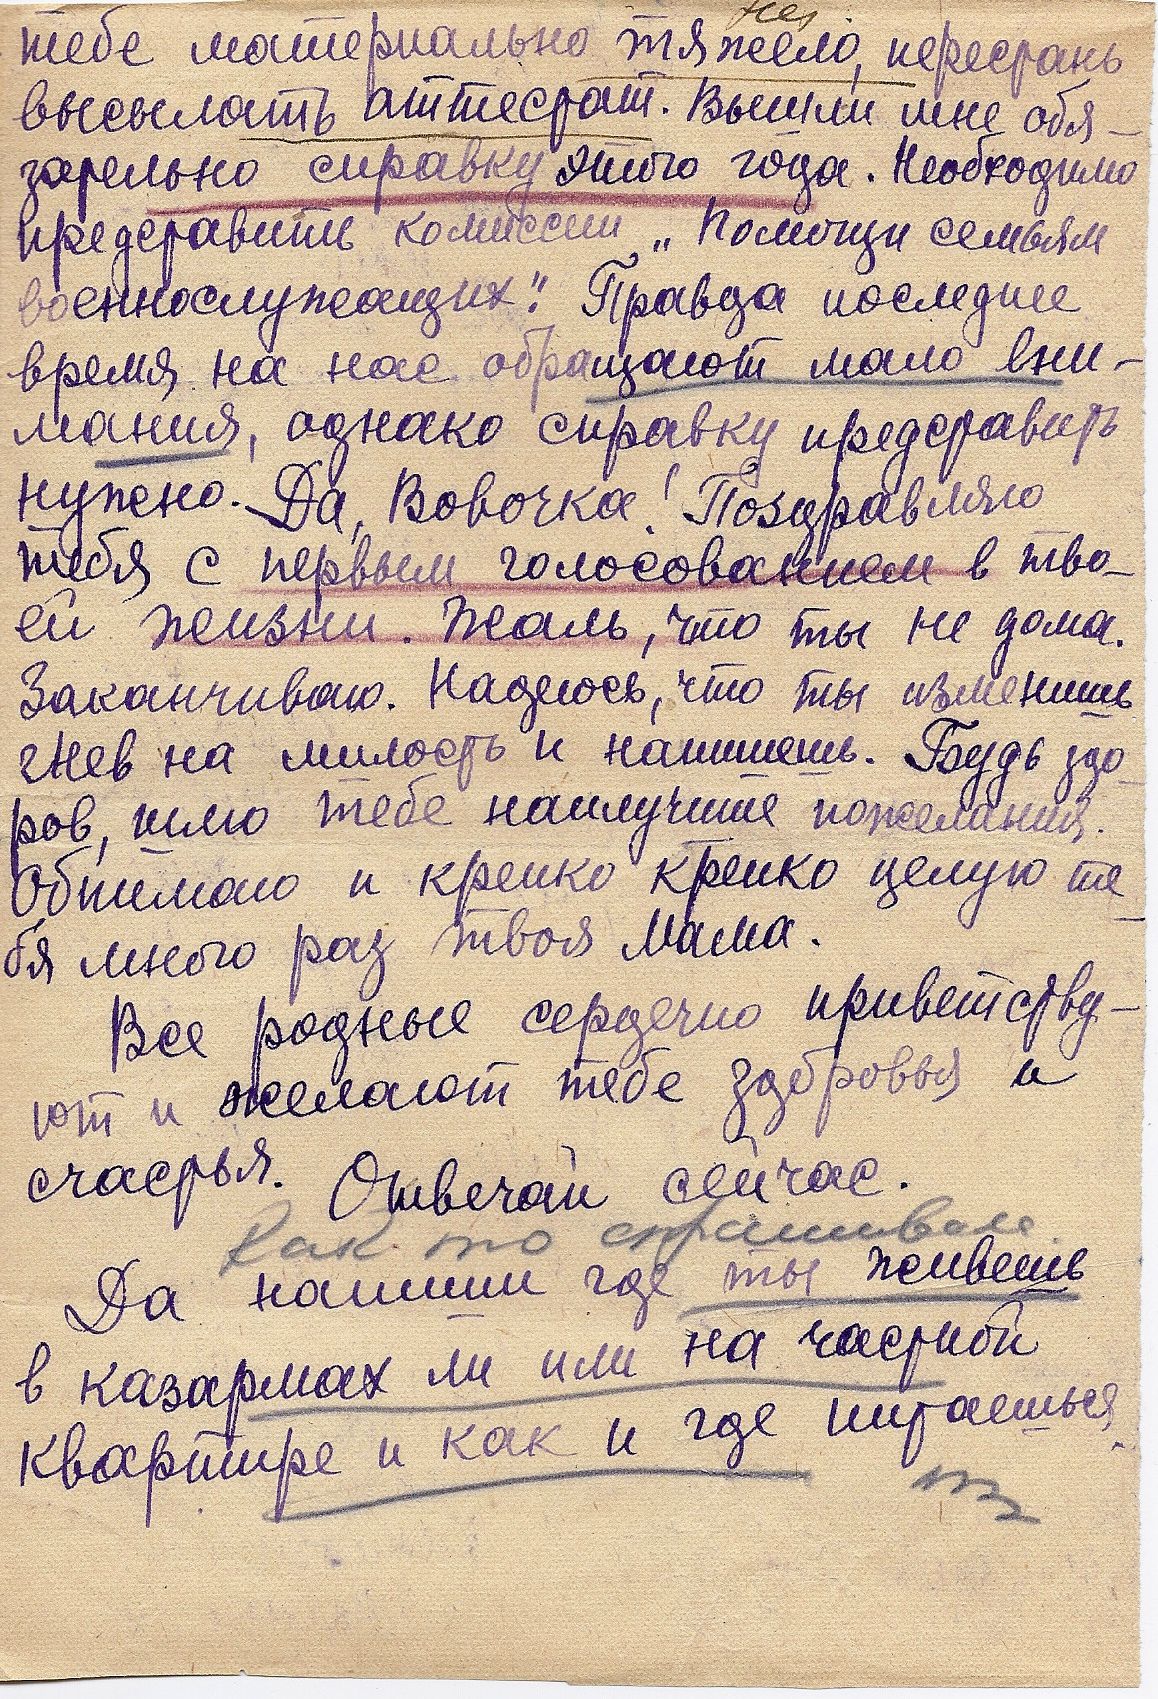 нет
тебе материально тяжело, перестань
высылать аттестат. Вышли мне обя-
зательно справку этого года. Необходимо
представить комиссии „Помощи семьям
военнослужащих". Правда последнее
время на нас обращают мало вни-
мания, однако справку представить
нужно. Да, Вовочка! Поздравляю
тебя с первым голосованием в тво-
ей жизни. Жаль, что ты не дома.
Заканчиваю. Надеюсь, что ты изменишь
гнев на милость и напишешь. Будь здо-
ров, шлю тебе наилучшие пожелания.
Обнимаю и крепко крепко целую те-
бя много раз твоя Мама.
Все родные сердечно приветству-
ют и желают тебе здоровья и
счастья. Отвечай сейчас.
Как то спрашивала.
Да напиши где ты живешь
в казармах ли или на частной
квартире и как и где питаешься.